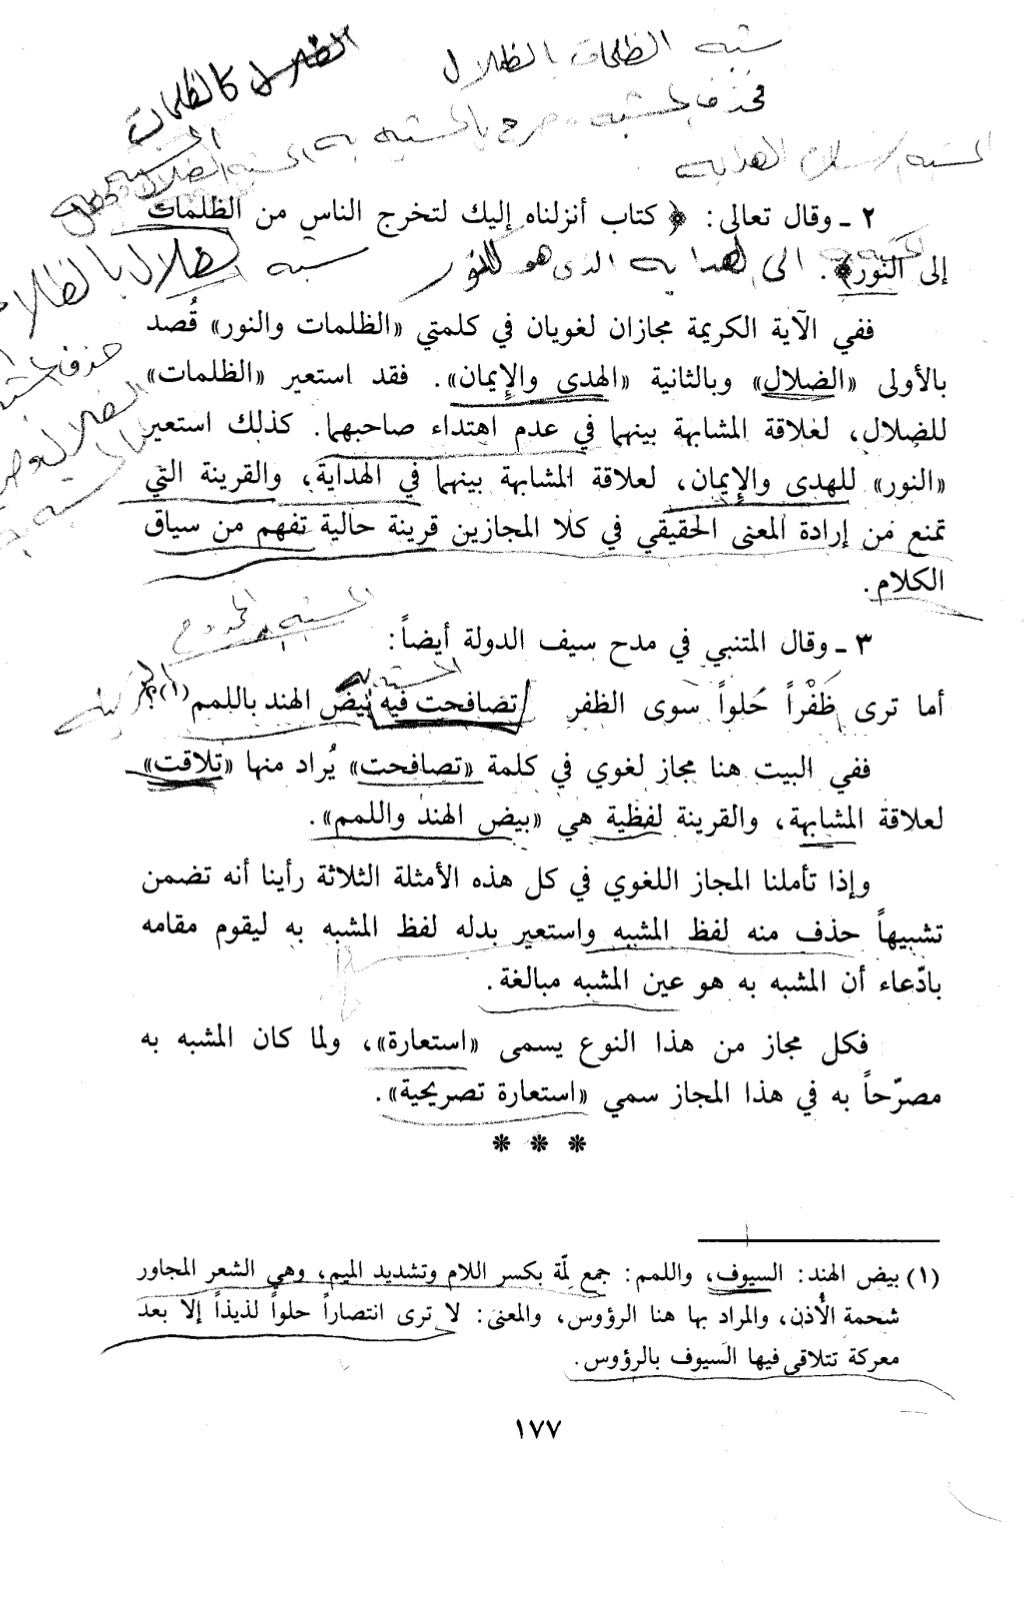 الضلال كالظلمات
شبه الظلمات بالظلال
فحذف المشبه وصرح بالمشبه به
٢ ـ وقال تعالى: ﴿ كتاب أنزلناه إليك لتخرج الناس من الظلمات
إلى النور﴾.
الى الهدايه الذى هو كالنور
شبه الضلال بالظلام
حذف المشبه
ففي الآية الكريمة مجازان لغويان في كلمتي «الظلمات والنور» قُصد
بالأولى «الضلال» وبالثانية «الهدى والإيمان». فقد استعير «الظلمات»
للضلال، لعلاقة المشابهة بينهما في عدم اهتداء صاحبهما. كذلك استعير
«النور» للهدى والإيمان، لعلاقة المشابهة بينهما في الهداية، والقرينة التي
تمنع من إرادة المعنى الحقيقي في كلا المجازين قرينة حالية تفهم من سياق
الكلام.
٣ ـ وقال المتنبي في مدح سيف الدولة أيضاً:
المشبه به
أما ترى ظَفْراً حُلواً سوى الظفر تصافحت فيه بيض الهند باللمم (١)؟
ففي البيت هنا مجاز لغوي في كلمة «تصافحت» يُراد منها «تلاقت»
لعلاقة المشابهة، والقرينة لفظية هي «بيض الهند واللمم».
وإذا تأملنا المجاز اللغوي في كل هذه الأمثلة الثلاثة رأينا أنه تضمن
تشبيهاً حذف منه لفظ المشبه واستعير بدله لفظ المشبه به ليقوم مقامه
بادّعاء أن المشبه به هو عين المشبه مبالغة.
فكل مجاز من هذا النوع يسمى «استعارة»، ولما كان المشبه به
مصرّحاً به في هذا المجاز سمي «استعارة تصريحية».
* * *
(١) بيض الهند: السيوف، واللمم: جمع لِمّة بكسر اللام وتشديد الميم، وهي الشعر المجاور
شحمة الأُذن، والمراد بها هنا الرؤوس، والمعنى: لا ترى انتصاراً حلواً لذيذاً إلا بعد
معركة تتلاقى فيها السيوف بالرؤوس.
١٧٧